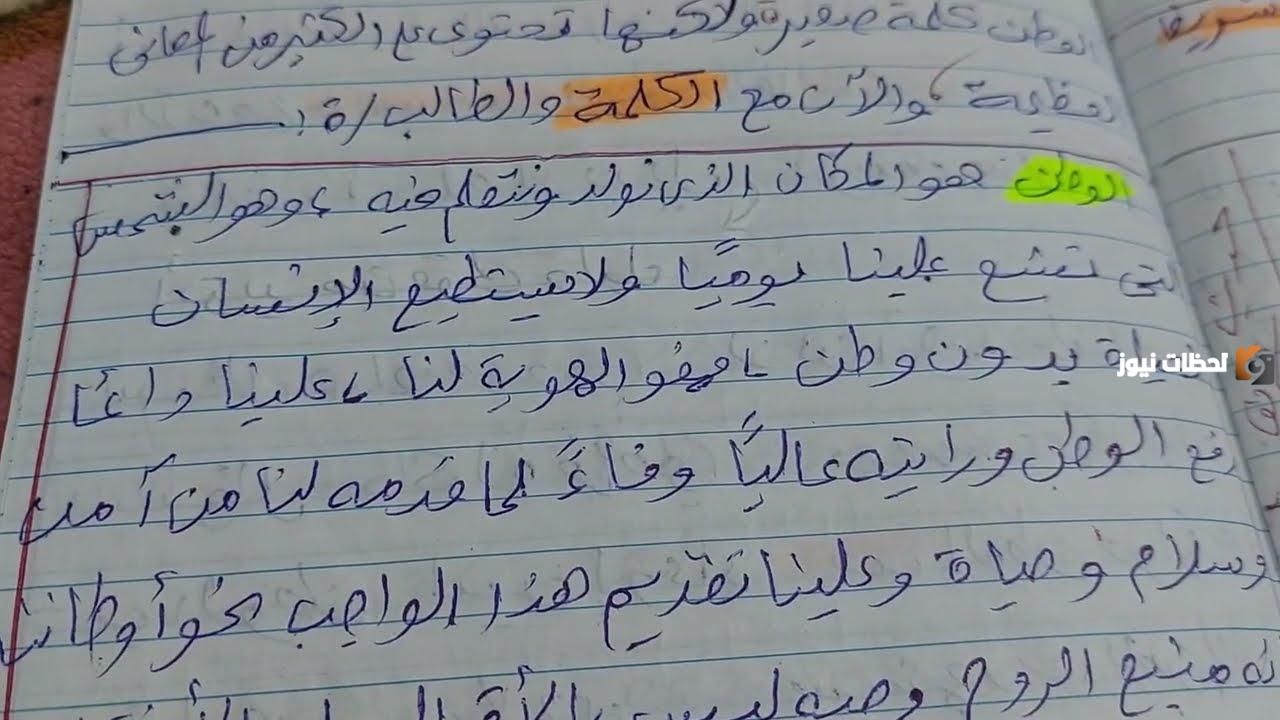 الوطن كلمة صغيرة ولاكنها تحتوى على الكثير من المعانى
والآن مع الكلمة والطالب/ة :
الوطن هو المكان الذى نولد ونتعلم فيه ، وهو الشمس
التى تشع علينا يوميًا ولا يستطيع الإنسان
بدون وطن ، فهو الهوية لنا ، علينا دائمًا
رفع الوطن ورايته عاليًا وفاءً لما قدمه لنا من أمن
وسلام وحياة وعلينا تقديم هذا الواجب نحو أوطاننا
منبع الروح
لحظات نيوز